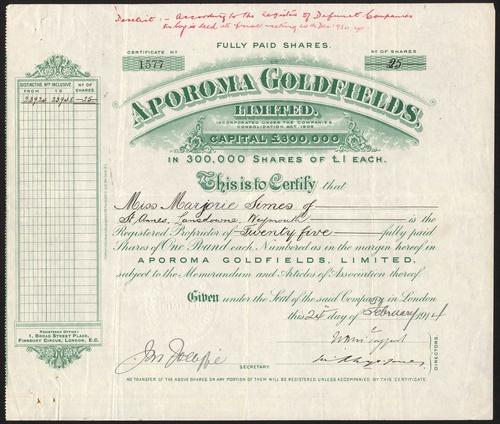 Derelict :- According to the Register of Defunct Companies
FULLY PAID SHARES.
CERTIFICATE No
1577
No OF SHARES
25
DISTINCTIVE Nos INCLUSIVE.
FROM TO
No OF SHARES
25
APOROMA GOLDFIELDS,
LIMITED.
INCORPORATED UNDER THE COMPANIES
CONSOLIDATION ACT, 1908
CAPITAL £300,000
IN 300,000 SHARES OF £1 EACH.
This is to Certify that
Miss Marjorie Simes of
St Annes, Lansdowne, Weymouth is the
Registered Proprietor of Twenty five fully paid
Shares of One Pound each, Numbered as in the margin hereof in
APOROMA GOLDFIELDS, LIMITED,
subject to the Memorandum and Articles of Association thereof.
Given under the Seal of the said Company in London
this 24 day of February 1914
REGISTERED OFFICE:
1, BROAD STREET PLACE,
FINSBURY CIRCUS, LONDON, E.C.
DIRECTORS.
SECRETARY.
NO TRANSFER OF THE ABOVE SHARES OR ANY PORTION OF THEM WILL BE REGISTERED UNLESS ACCOMPANIED BY THIS CERTIFICATE.